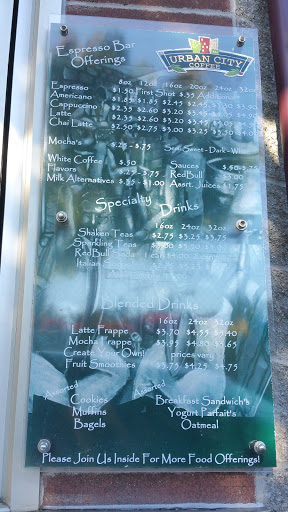 Espresso Bar
Offerings
URBAN CITY
COFFEE
8oz 12oz 16oz 20oz 24oz 32oz
Espresso $1.50 First Shot $.35 Additional
Americano $1.65 $1.85 $2.45
Cappuccino $2.35 $2.60 $3.20
Latte $2.35 $2.60 $3.20 $3.45
Chai Latte $2.50 $2.75 $3.00 $3.25 $3.50
Mocha's $.25 - $.75 Semi Sweet - Dark - White
White Coffee $.50 Sauces $.50-$.75
Flavors $.25-$.75 RedBull $3.00
Milk Alternatives $.55-$1.00 Assrt. Juices $1.75
Specialty Drinks
16oz 24oz 32oz
Shaken Teas $2.75 $3.25 $3.75
Sparkling Teas $3.00
RedBull
Italian
Blended Drinks
16oz 24oz 32oz
Latte Frappe $3.70 $4.55 $5.40
Mocha Frappe $3.95 $4.80 $5.65
Create Your Own! prices vary
Fruit Smoothies $3.75 $4.25 $4.75
Assorted Assorted
Cookies Breakfast Sandwich's
Muffins Yogurt Parfait's
Bagels Oatmeal
Please Join Us Inside For More Food Offerings!